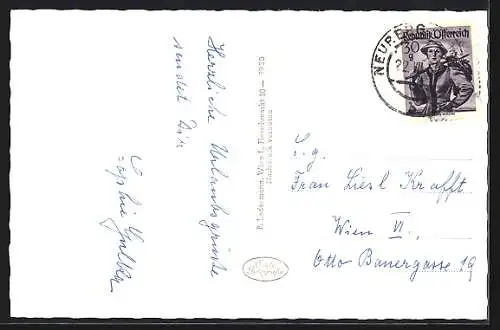 Herzliche Urlaubsgrüsse
sendet Dir
Sophie
P. Ledermann, Wien I., Fleischmarkt 20 — 1950
Nachdruck verboten
Echte
Photographie
NEUBERG
22. VII
Republik Österreich
30 g
S. g.
Frau Liesl Krafft
Wien VI.,
Otto Bauergasse 19